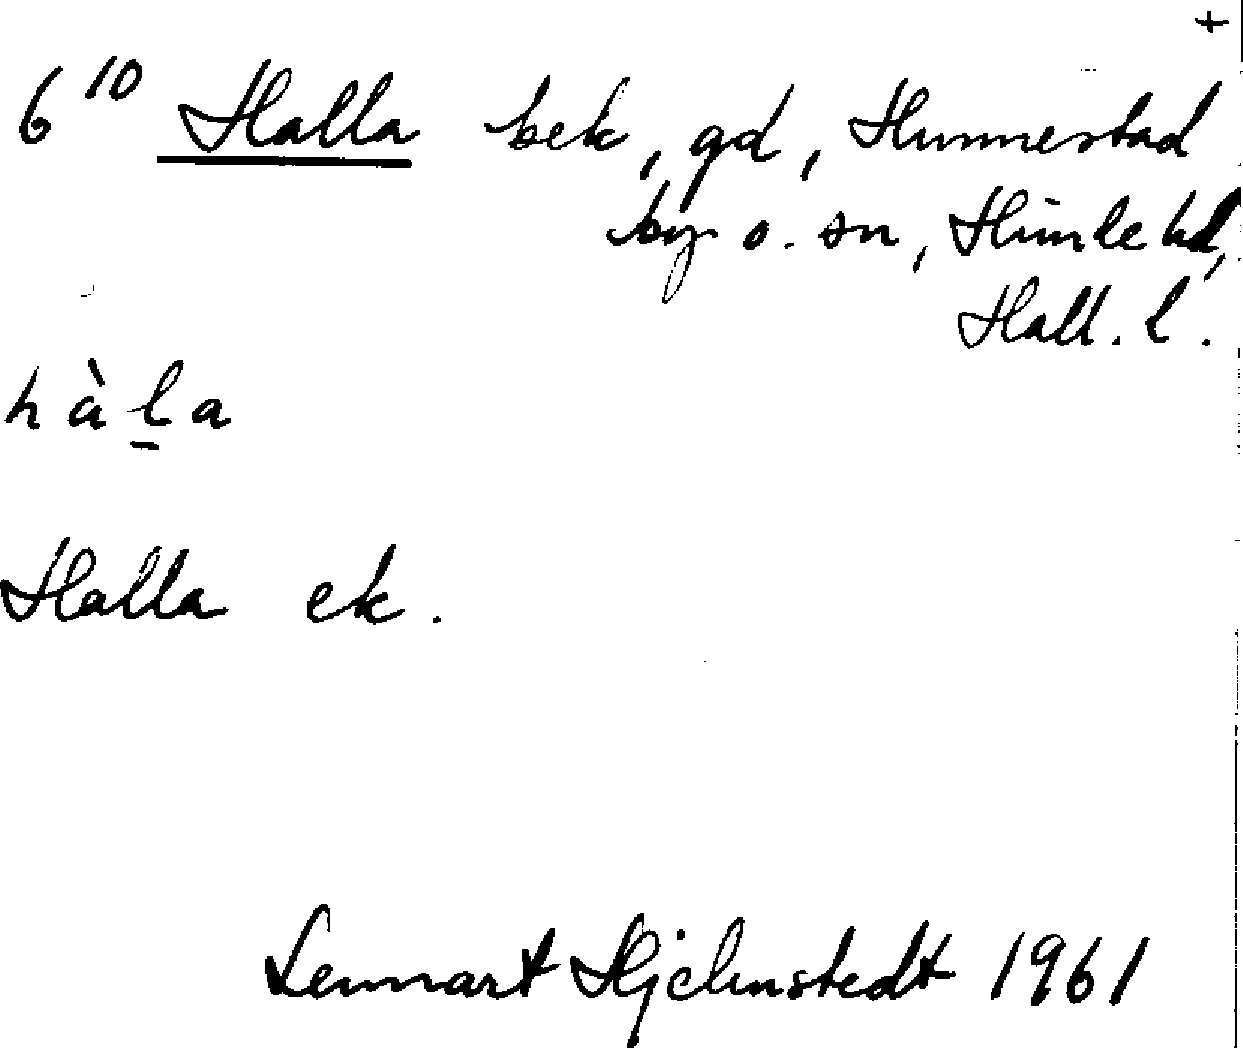 +
6 10 Halla bek, gd, Hunnestad
by o. sn, Himle hd,
Hall. l.
hàḻa
Halla ek.
Lennart Hjelmstedt 1961